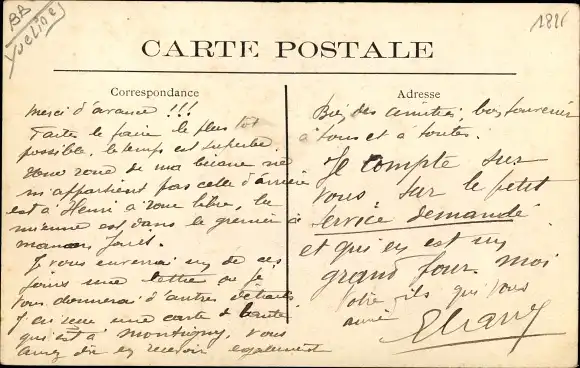 BB
Yvelines
CARTE POSTALE
Correspondance
Merci d'avance !!!
Faites le faire le plus tôt
possible, le temps est superbe.
Une roue de ma bécane ne
m'appartient pas celle d'arrière
est à Henri à roue libre, la
mienne est dans le grenier à
maman
Je vous enverrai un de ces
jours une lettre où je
vous donnerai d'autres détails.
J'ai reçu une carte de
qui est à Montigny. Vous
avez dû en recevoir également
Adresse
des amitiés, bon souvenir
à tous et à toutes.
Je compte sur
vous, sur le petit
service demandé
et qui en est un
grand pour moi
votre fils qui vous
aime